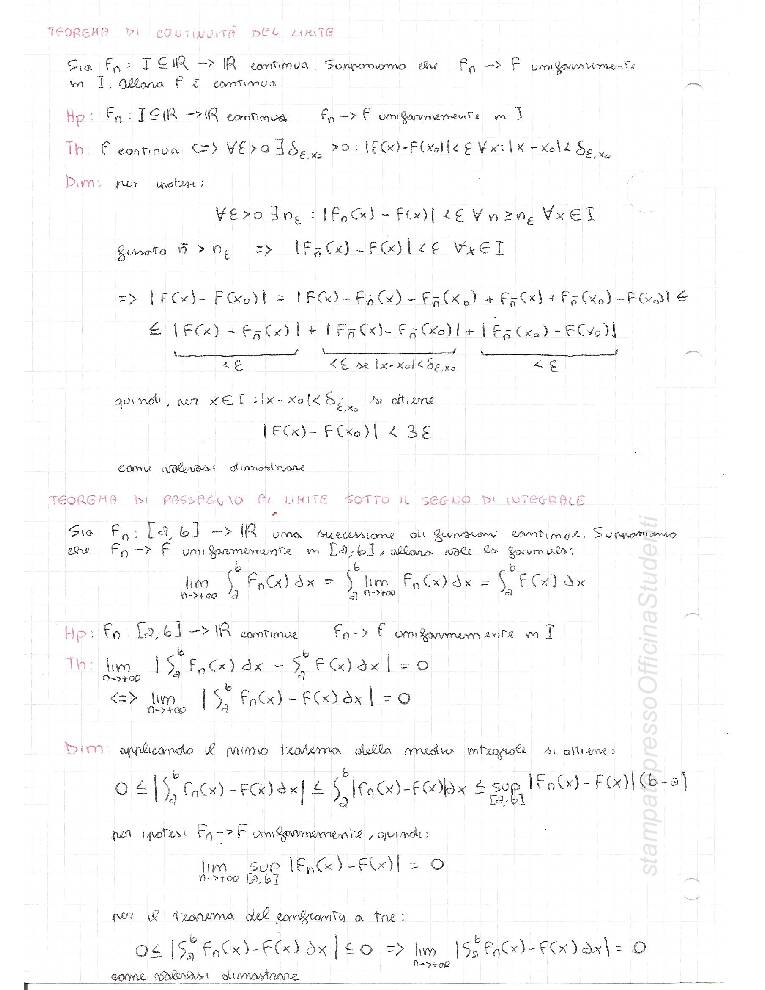 TEOREMA DI CONTINUITÀ DEL LIMITE
Sia Fn : I ⊆ IR -> IR continua. Supponiamo che Fn -> F uniformemente
in I. Allora F è continua
Hp: Fn : I ⊆ IR -> IR continua Fn -> F uniformemente in I
Th: F continua <=> ∀ε>0 ∃ δε,x₀ >0 : |F(x)-F(x₀)|<ε ∀x: |x-x₀|<δε,x₀
Dim: per ipotesi:
∀ε>0 ∃nε : |Fn(x) - F(x)| <ε ∀n≥nε ∀x∈I
fissato n̄ > nε => |Fn̄(x) - F(x)| <ε ∀x∈I
=> |F(x) - F(x₀)| = |F(x) - Fn̄(x) - Fn̄(x₀) + Fn̄(x) + Fn̄(x₀) - F(x₀)| ≤
≤ |F(x) - Fn̄(x)| + |Fn̄(x) - Fn̄(x₀)| + |Fn̄(x₀) - F(x₀)|
<ε <ε se |x-x₀|<δε,x₀ <ε
quindi, per x∈I : |x-x₀|<δε,x₀ si ottiene
|F(x) - F(x₀)| < 3ε
come volevasi dimostrare
TEOREMA DI PASSAGGIO AL LIMITE SOTTO IL SEGNO DI INTEGRALE
Sia Fn : [a,b] -> IR una successione di funzioni continue. Supponiamo
che Fn -> F uniformemente in [a,b], allora vale la formula:
lim n->+∞ ∫ₐᵇ Fn(x) dx = ∫ₐᵇ lim n->+∞ Fn(x) dx = ∫ₐᵇ F(x) dx
Hp: Fn [a,b] -> IR continue Fn -> F uniformemente in I
Th: lim n->+∞ |∫ₐᵇ Fn(x) dx - ∫ₐᵇ F(x) dx| = 0
<=> lim n->+∞ |∫ₐᵇ Fn(x) - F(x) dx| = 0
Dim: applicando il primo teorema della media integrale si ottiene:
0 ≤ |∫ₐᵇ Fn(x) - F(x) dx| ≤ ∫ₐᵇ |Fn(x) - F(x)| dx ≤ sup [a,b] |Fn(x) - F(x)| (b-a)
per ipotesi Fn -> F uniformemente, quindi:
lim n->+∞ sup [a,b] |Fn(x) - F(x)| = 0
per il teorema del confronto a tre:
0 ≤ |∫ₐᵇ Fn(x) - F(x) dx| ≤ 0 => lim n->+∞ |∫ₐᵇ Fn(x) - F(x) dx| = 0
come volevasi dimostrare
stampato presso OfficinaStudenti